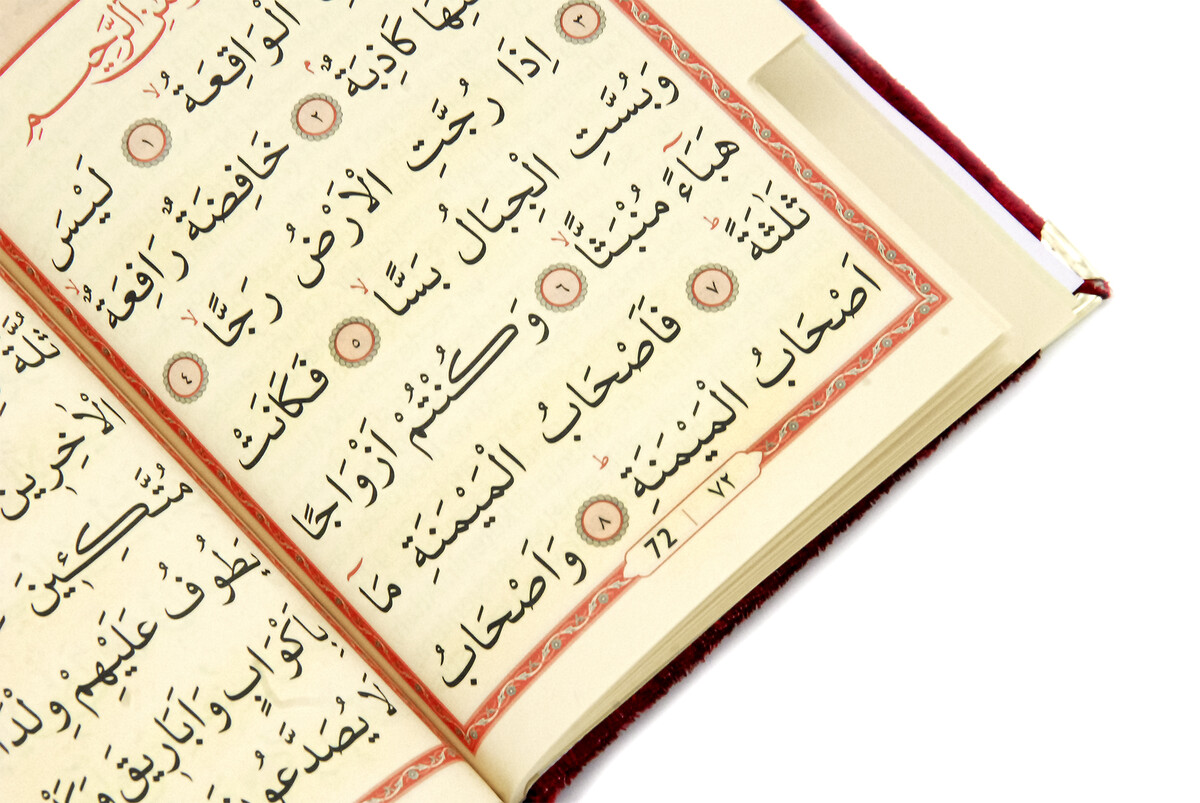 الرَّحِيمِ
الْوَاقِعَةُ ۙ ١ لَيْسَ
كَاذِبَةٌ ۢ ٢ خَافِضَةٌ رَافِعَةٌ ۙ
٣ اِذَا رُجَّتِ الْاَرْضُ رَجًّا ۙ ٤
وَبُسَّتِ الْجِبَالُ بَسًّا ۙ ٥ فَكَانَتْ
هَبَٓاءً مُنْبَثًّا ۙ ٦ وَكُنْتُمْ اَزْوَاجًا
ثَلٰثَةً ط ٧ فَاَصْحَابُ الْمَيْمَنَةِ مَٓا
اَصْحَابُ الْمَيْمَنَةِ ط ٨ وَاَصْحَابُ
72 | ٧٢
ثُلَّةٌ
الْاٰخِرِينَ
مُتَّكِئِينَ
يَطُوفُ عَلَيْهِمْ
بِاَكْوَابٍ وَاَبَارِيقَ
لَا يُصَدَّعُونَ